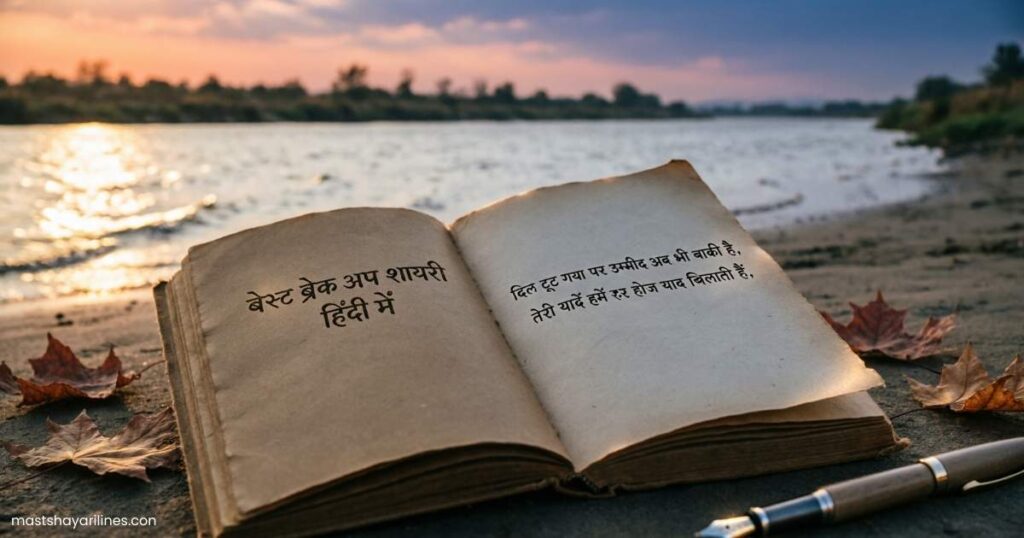 बेस्ट ब्रेक अप शायरी
हिंदी में
दिल टूट गया पर उम्मीद अब भी बाकी है,
तेरी यादें हमें होज याद बिलाती हैं,
mastshayarilines.com